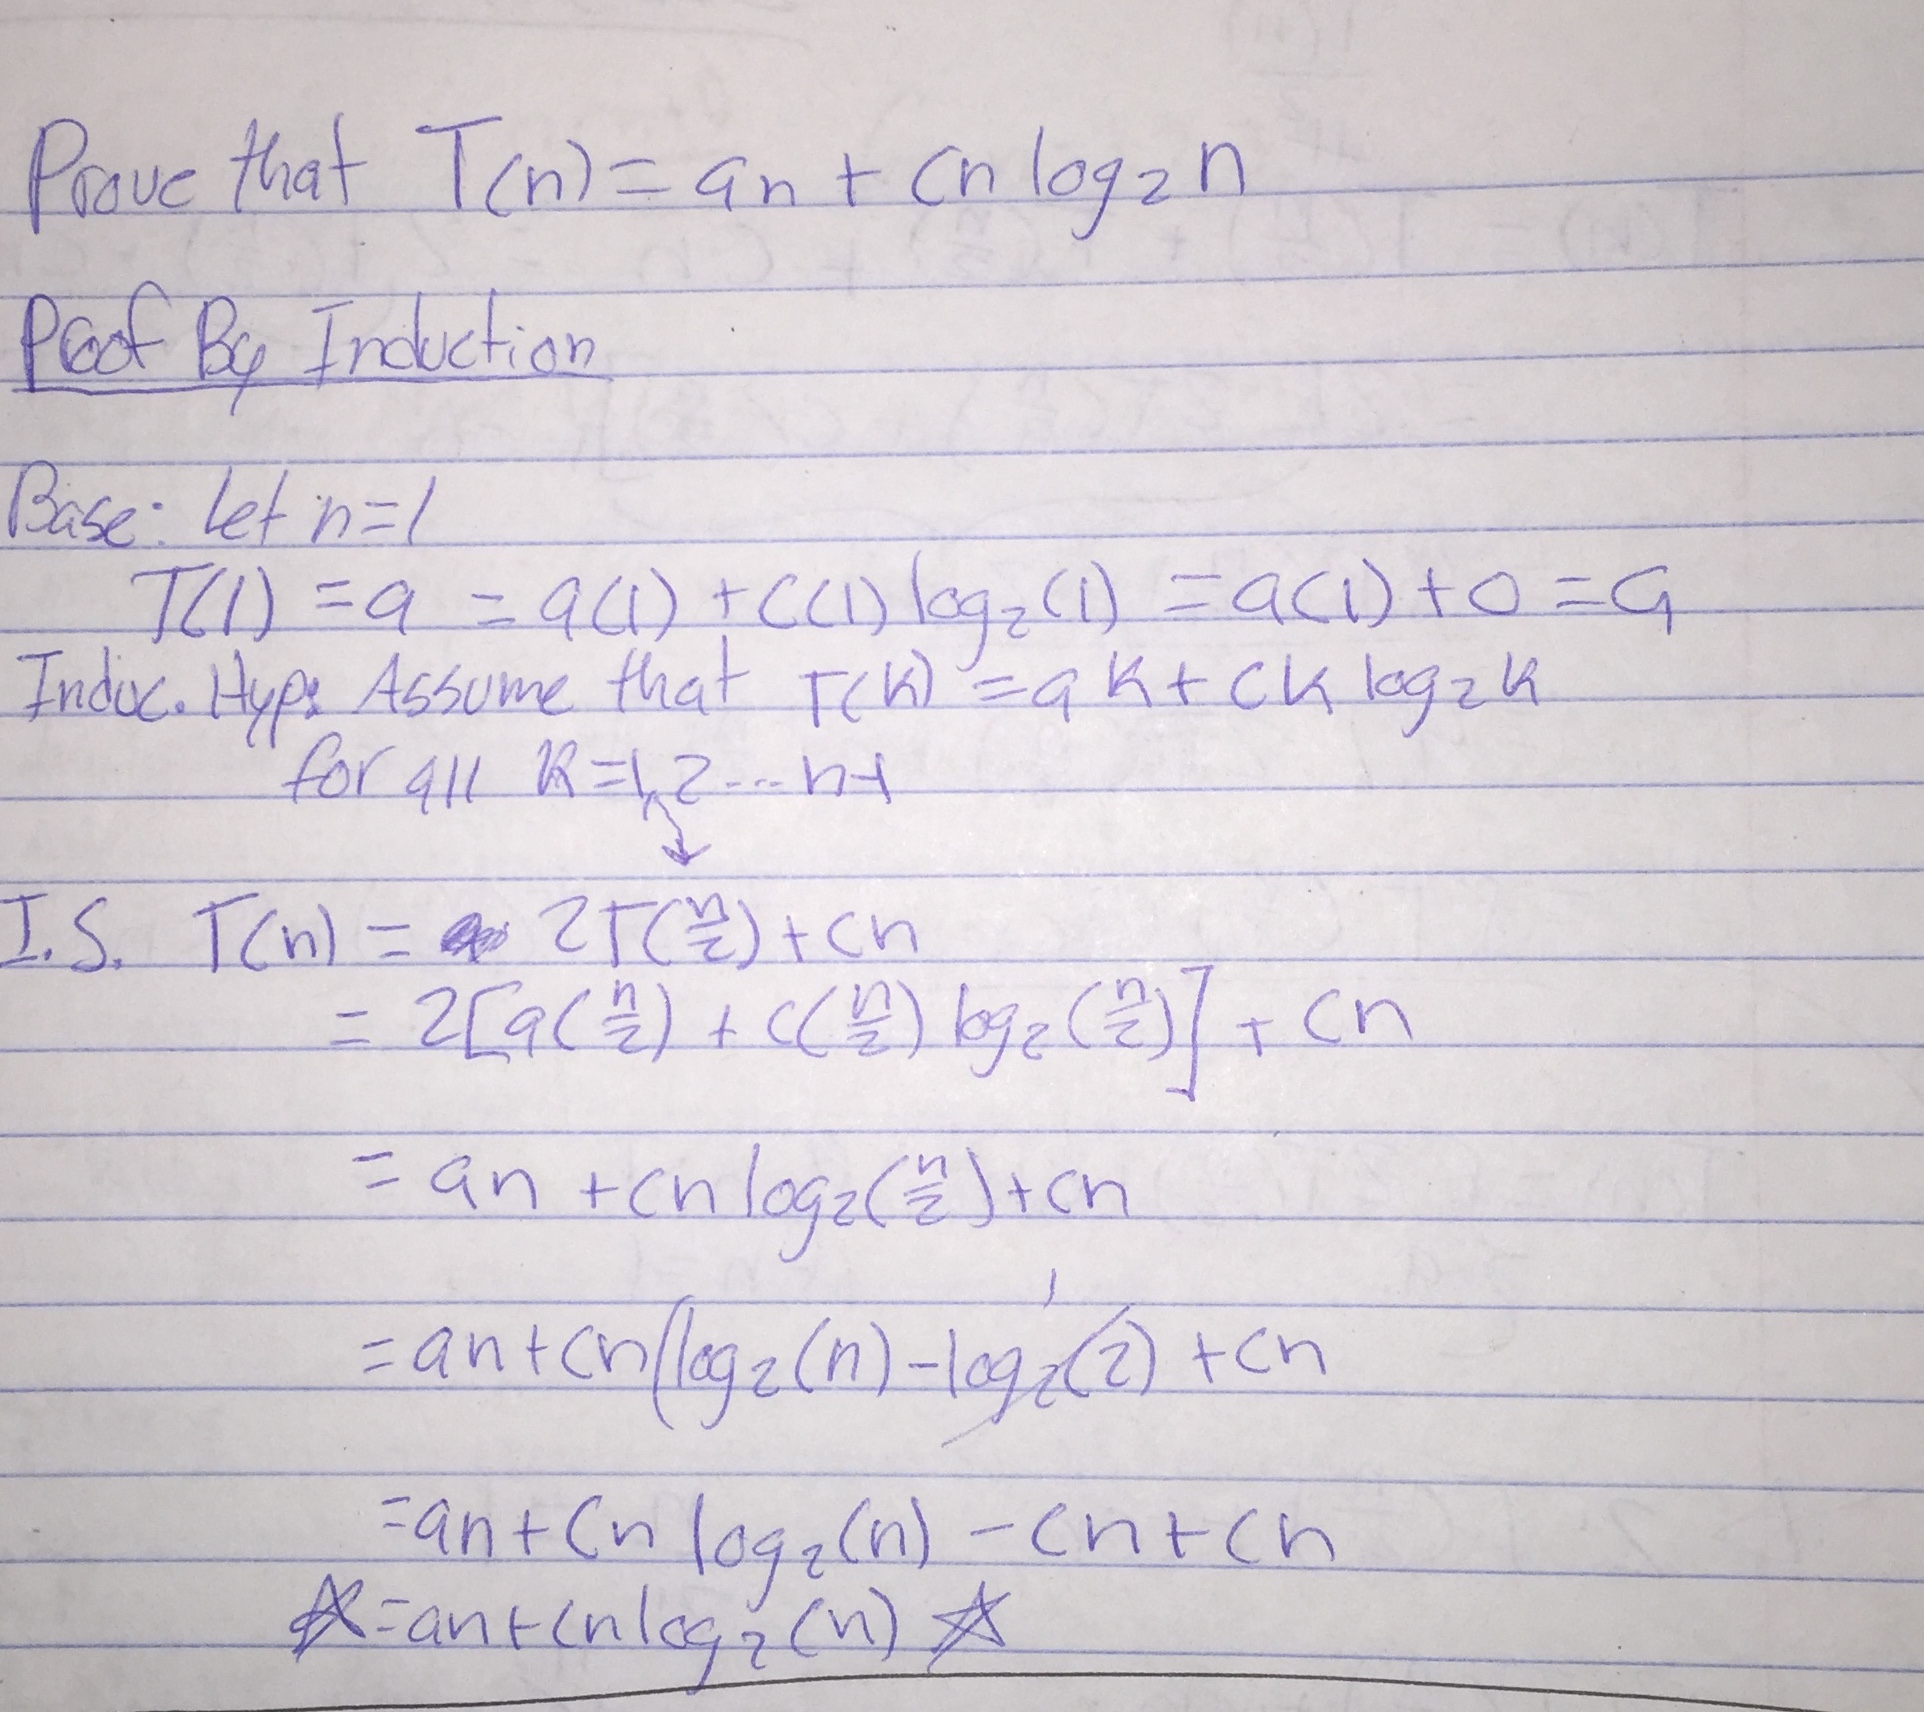 Prove that T(n) = an + cn log₂ n
Proof By Induction
Base: let n=1
T(1) = a = a(1) + c(1) log₂(1) = a(1) + 0 = a
Induc. Hyp: Assume that T(k) = ak + ck log₂ k
for all k=1,2...n-1
I.S. T(n) = 2T(n/2) + cn
= 2[a(n/2) + c(n/2) log₂(n/2)] + cn
= an + cn log₂(n/2) + cn
1
= an + cn(log₂(n) - log₂(2) + cn
= an + cn log₂(n) - cn + cn
☆ = an + cn log₂(n) ☆